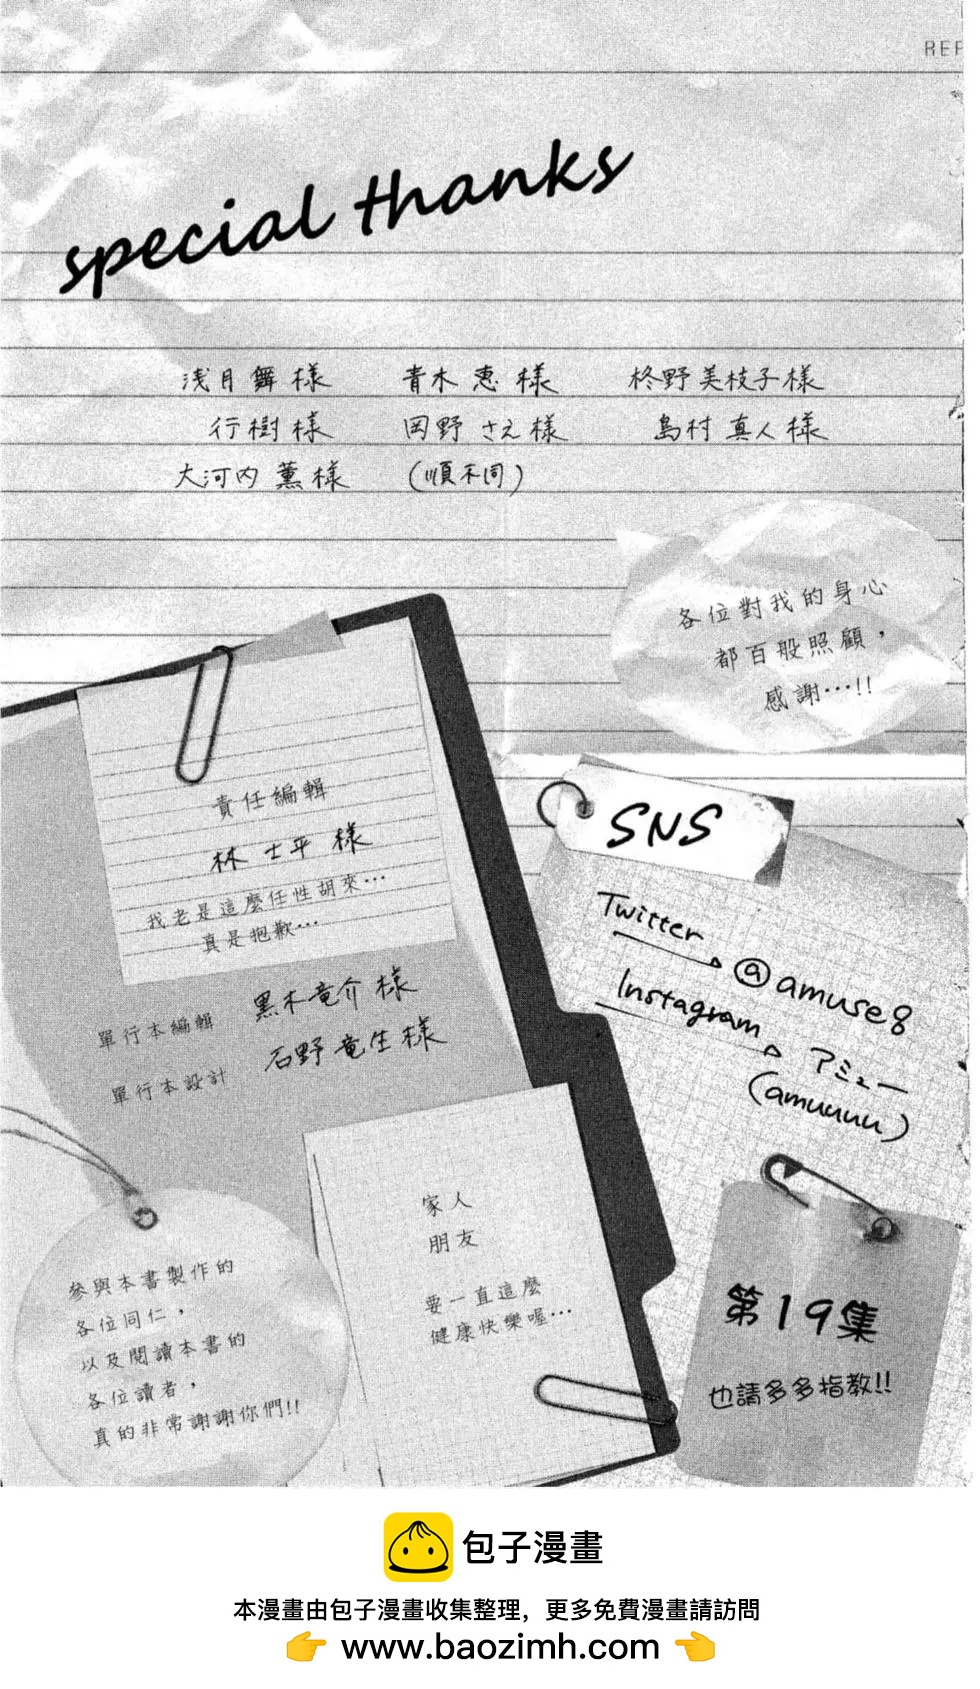 REP
special thanks
浅月舞様 青木恵様 柊野美枝子様
行樹様 岡野さえ様 島村真人様
大河内薫様 (順不同)
各位對我的身心
都百般照顧，
感謝…!!
責任編輯
林士平様
我老是這麼任性胡來…
真是抱歉…
單行本編輯 黒木竜介様
單行本設計 石野竜生様
SNS
Twitter
@amuse8
Instagram
アミュー
(amuuuu)
家人
朋友
要一直這麼
健康快樂喔…
參與本書製作的
各位同仁，
以及閱讀本書的
各位讀者，
真的非常謝謝你們!!
第19集
也請多多指教!!
包子漫畫
本漫畫由包子漫畫收集整理，更多免費漫畫請訪問
👉 www.baozimh.com 👈